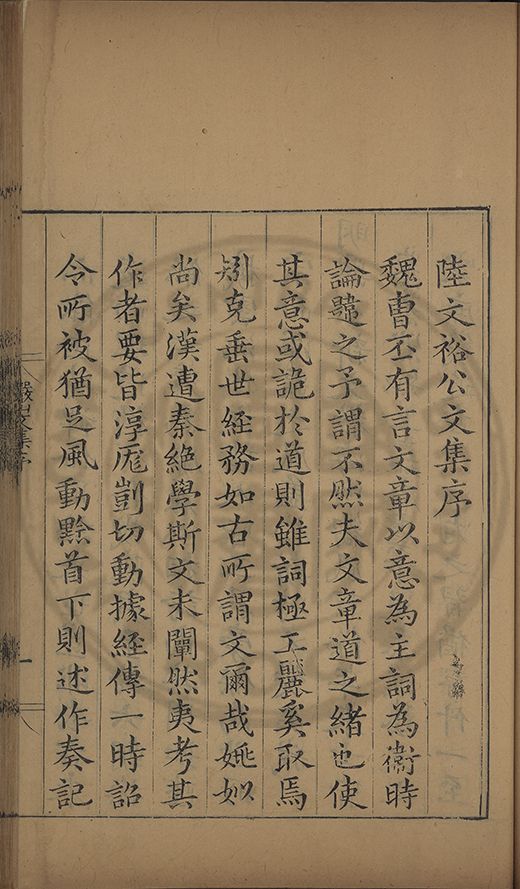 陸文裕公文集序
魏曹丕有言文章以意為主詞為衞時
論韙之予謂不然夫文章道之緒也使
其意或詭於道則雖詞極工麗奚取焉
矧克垂世經務如古所謂文爾哉姚姒
尚矣漢遭秦絕學斯文未闡然夷考其
作者要皆淳厖剴切動據經傳一時詔
令所被猶足風動黔首下則述作奏記
一